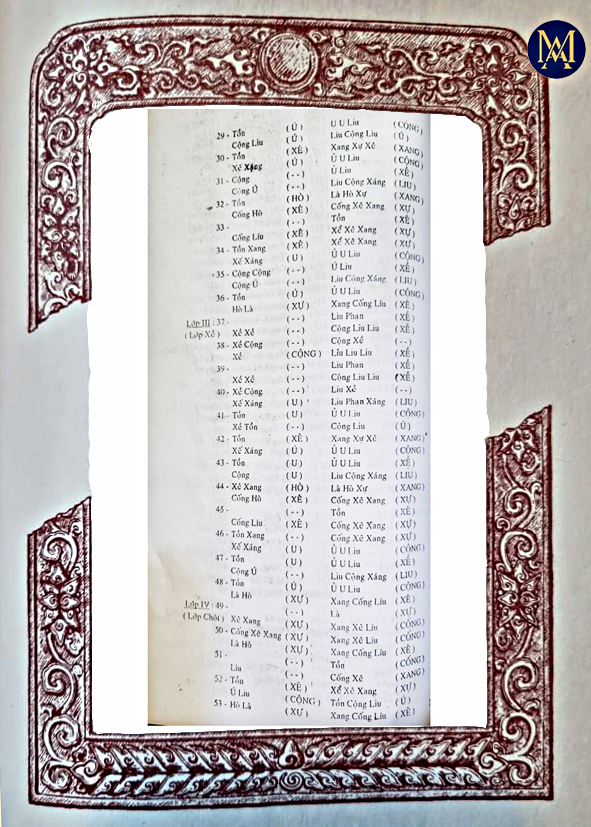 MA
29 - Tồn (Ú) U U Liu (CỘNG)
Cộng Liu (Ú) Liu Cộng Liu (Ú)
30 - Tồn (XÊ) Xang Xự Xê (XANG)
Xế Xáng (Ú) Ủ U Liu (CỘNG)
31 - Cộng (--) Ủ Liu (XỀ)
Cộng Ú (--) Liu Cộng Xáng (LIU)
32 - Tồn (HÒ) Là Hò Xự (XANG)
Cống Hò (XÊ) Cống Xê Xang (XỰ)
33 - (--) Tồn (XÊ)
Cống Líu (XÊ) Xể Xê Xang (XỰ)
34 - Tồn Xang (XÊ) Xể Xê Xang (XỰ)
Xế Xáng (U) Ủ U Liu (CỘNG)
35 - Cộng Cộng (--) Ủ Liu (XỀ)
Cộng Ú (--) Liu Cộng Xáng (LIU)
36 - Tồn (Ú) Ủ U Liu (CỘNG)
Hò Là (XỰ) Xang Cống Líu (XÊ)
Lớp III : 37 - (--) Liu Phan (XỀ)
(Lớp Xề) Xề Xề (--) Cộng Liu Liu (XỀ)
38 - Xề Cộng (--) Cộng Xề (--)
Xề (CỘNG) Liu Liu Liu (XỀ)
39 - (--) Liu Phan (XỀ)
Xề Xề (--) Cộng Liu Liu (XỀ)
40 - Xề Cộng (--) Liu Xề (--)
Xế Xáng (U) Liu Phan Xáng (LIU)
41 - Tồn (U) Ủ U Liu (CỘNG)
Xề Tồn (--) Cộng Liu (Ú)
42 - Tồn (XÊ) Xang Xự Xê (XANG)
Xế Xáng (Ú) Ủ U Liu (CỘNG)
43 - Tồn (U) Ủ U Liu (XỀ)
Cộng (U) Liu Cộng Xáng (LIU)
44 - Xê Xang (HÒ) Là Hò Xự (XANG)
Cống Hò (XÊ) Cống Xê Xang (XỰ)
45 - (--) Tồn (XÊ)
Cống Líu (XÊ) Cống Xê Xang (XỰ)
46 - Tồn Xang (--) Cống Xê Xang (XỰ)
Xế Xáng (U) Ủ U Liu (CỘNG)
47 - Tồn (U) Ủ U Liu (XỀ)
Cộng Ú (--) Liu Cộng Xáng (LIU)
48 - Tồn (Ú) Ủ U Liu (CỘNG)
Là Hò (XỰ) Xang Cống Líu (XÊ)
Lớp IV : 49 - (--) Là (XỰ)
(Lớp Chót) Xê Xang (XỰ) Xang Xê Líu (CỐNG)
50 - Cống Xê Xang (XỰ) Xang Xê Líu (CỐNG)
Là Hò (XỰ) Xang Cống Líu (XÊ)
51 - (--) Tồn (CỐNG)
Líu (--) Cống Xê (XANG)
52 - Tồn (XÊ) Xể Xê Xang (XỰ)
Ú Liu (CỘNG) Tồn Cộng Liu (Ú)
53 - Hò Là (XỰ) Xang Cống Líu (XÊ)